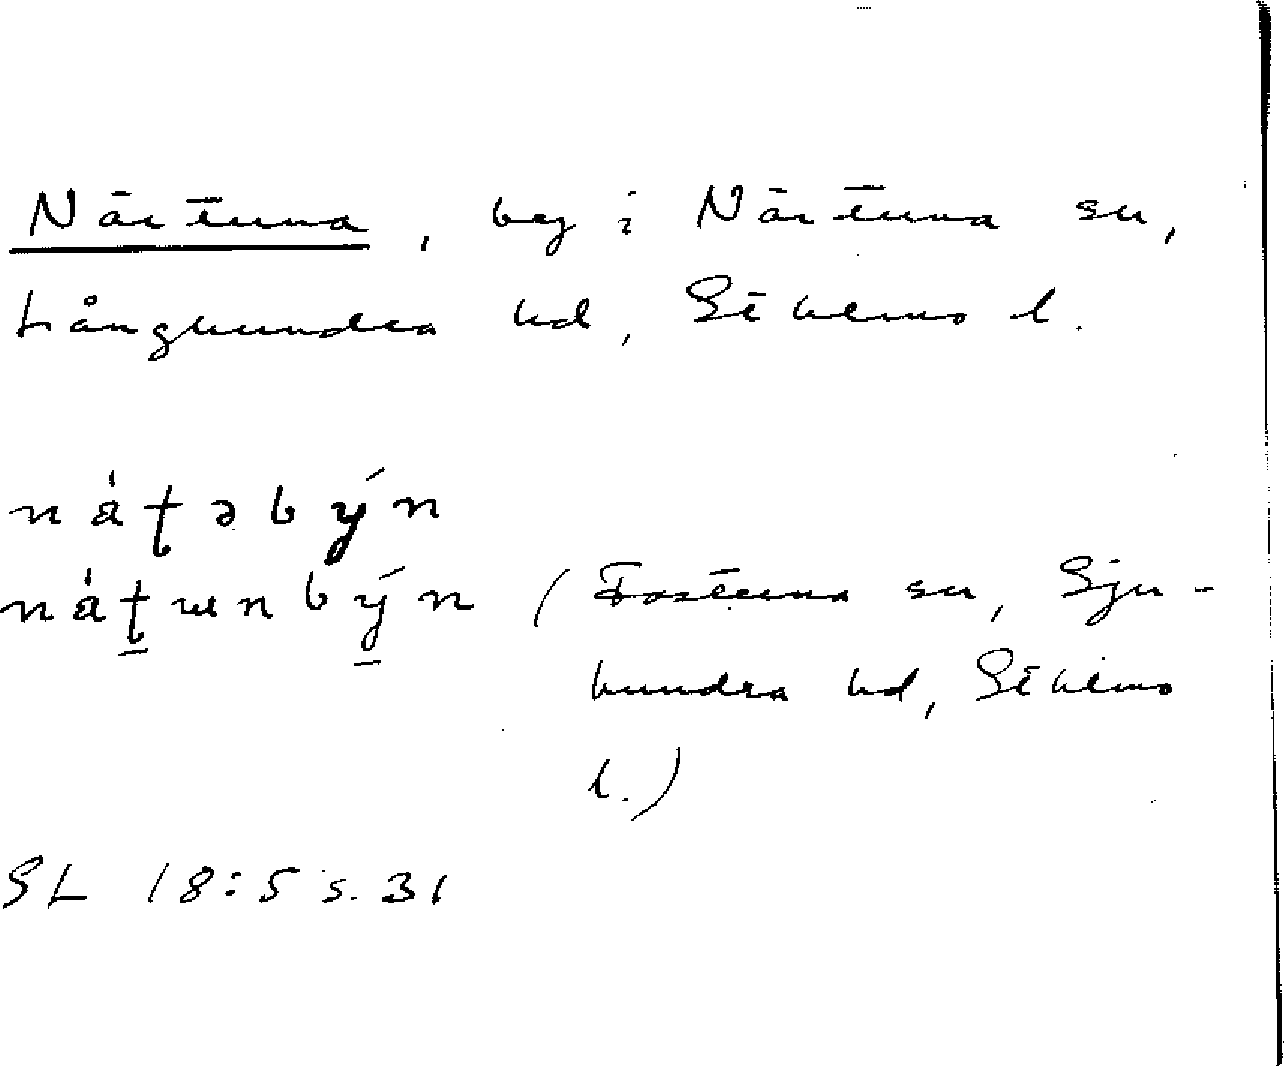 Närtuna, by i Närtuna sn,
Långhundra hd, Sthlms l.
nàʈəbýn
nàʈɯnbýn (Fasterna sn, Sju-
hundra hd, Sthlms
l.)
SL 18:5 s. 31